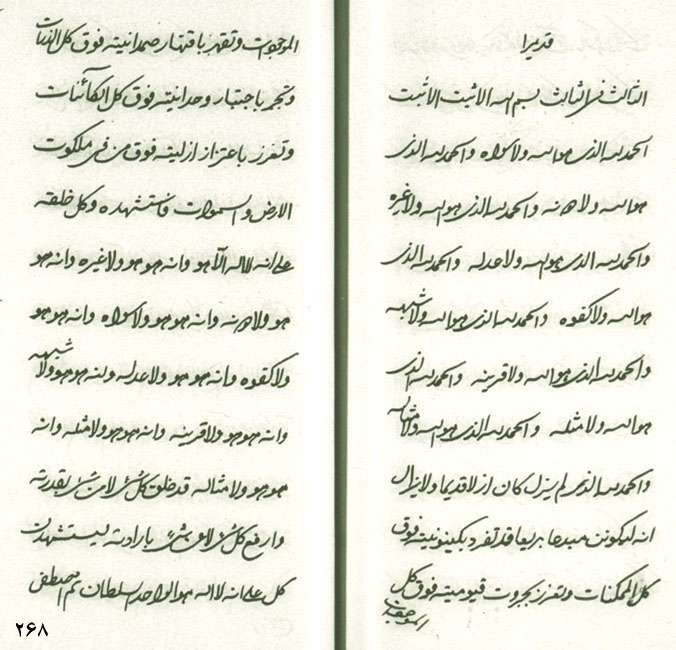 قديرا
الثالث في الثالث بسم الله الاثبت الاثبت
الحمد لله الذي هو الله ولا سواه والحمد لله الذي
هو الله ولا هو نه والحمد لله الذي هو الله ولا غيره
والحمد لله الذي هو الله ولا عدله والحمد لله الذي
هو الله ولا كفوه والحمد لله الذي هو الله ولا شبهه
والحمد لله الذي هو الله ولا قرينه والحمد لله الذي
هو الله ولا مثله والحمد لله الذي هو الله ولا مثاله
والحمد لله الذي لم يزل كان ازلا قديما ولا يزال
انه ليكونن مبدعا بريعا قد تفرد بكينونيته فوق
كل الممكنات وتعزز بجبروت قيوميته فوق كل
الموجودات وتقهر باقتهار صمدانيته فوق كل الذرات
وتجبر باجتبار وحدانيته فوق كل الكائنات
وتعزز باعتزاز ازليته فوق من في ملكوت
الارض والسموات فاستشهده وكل خلقه
على انه لا اله الا هو وانه هو هو ولا غيره وانه هو
هو ولا هو نه وانه هو هو ولا سواه وانه هو هو
ولا كفوه وانه هو هو ولا عدله وانه هو هو ولا شبهه
وانه هو هو ولا قرينه وانه هو هو ولا مثله وانه
هو هو ولا مثاله قد خلق كل شئ لا من شئ بقدرته
وارفع كل شئ لا من شئ بارادته ليستشهدن
كل على انه لا اله هو الواحد السلطان ثم اصطفى
۲۶۸